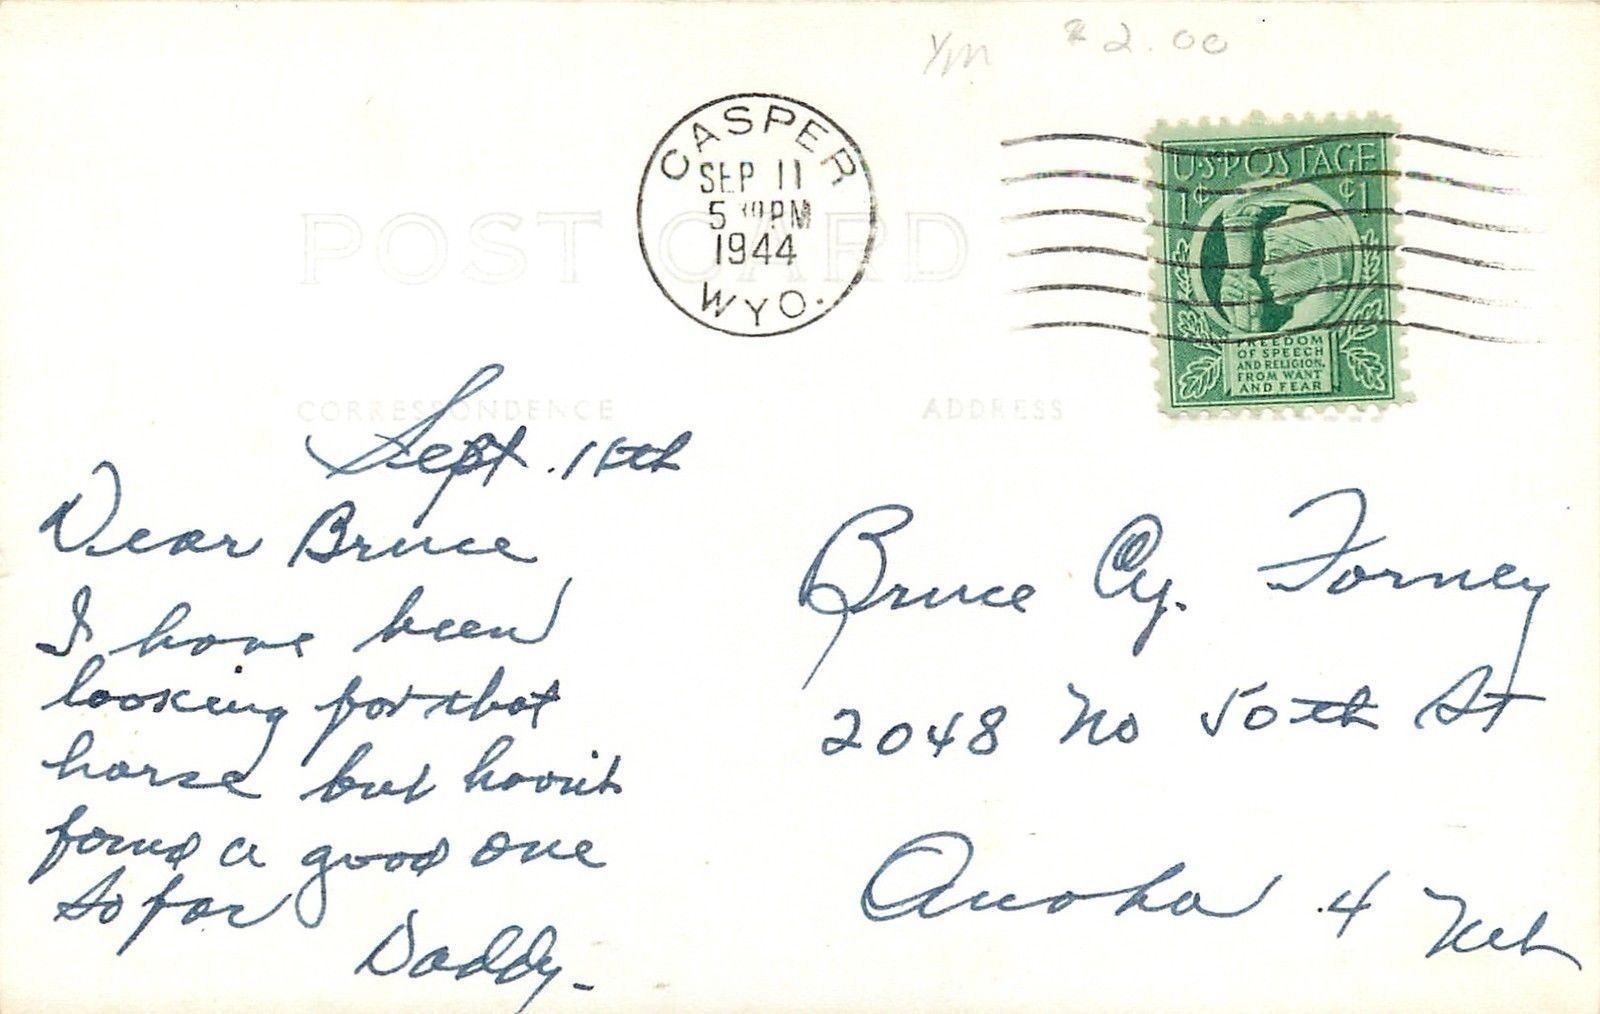 Ym $2.00
CASPER
SEP 11
5 30 PM
1944
WYO.
U·S·POSTAGE
1¢ ¢1
FREEDOM
OF SPEECH
AND RELIGION,
FROM WANT
AND FEAR
POST CARD
CORRESPONDENCE
ADDRESS
Sept. 11th
Dear Bruce
I have been
looking for that
horse but haven't
found a good one
so far
Daddy-
Bruce Cy. Forney
2048 No 50th St
Omaha 4 Neb